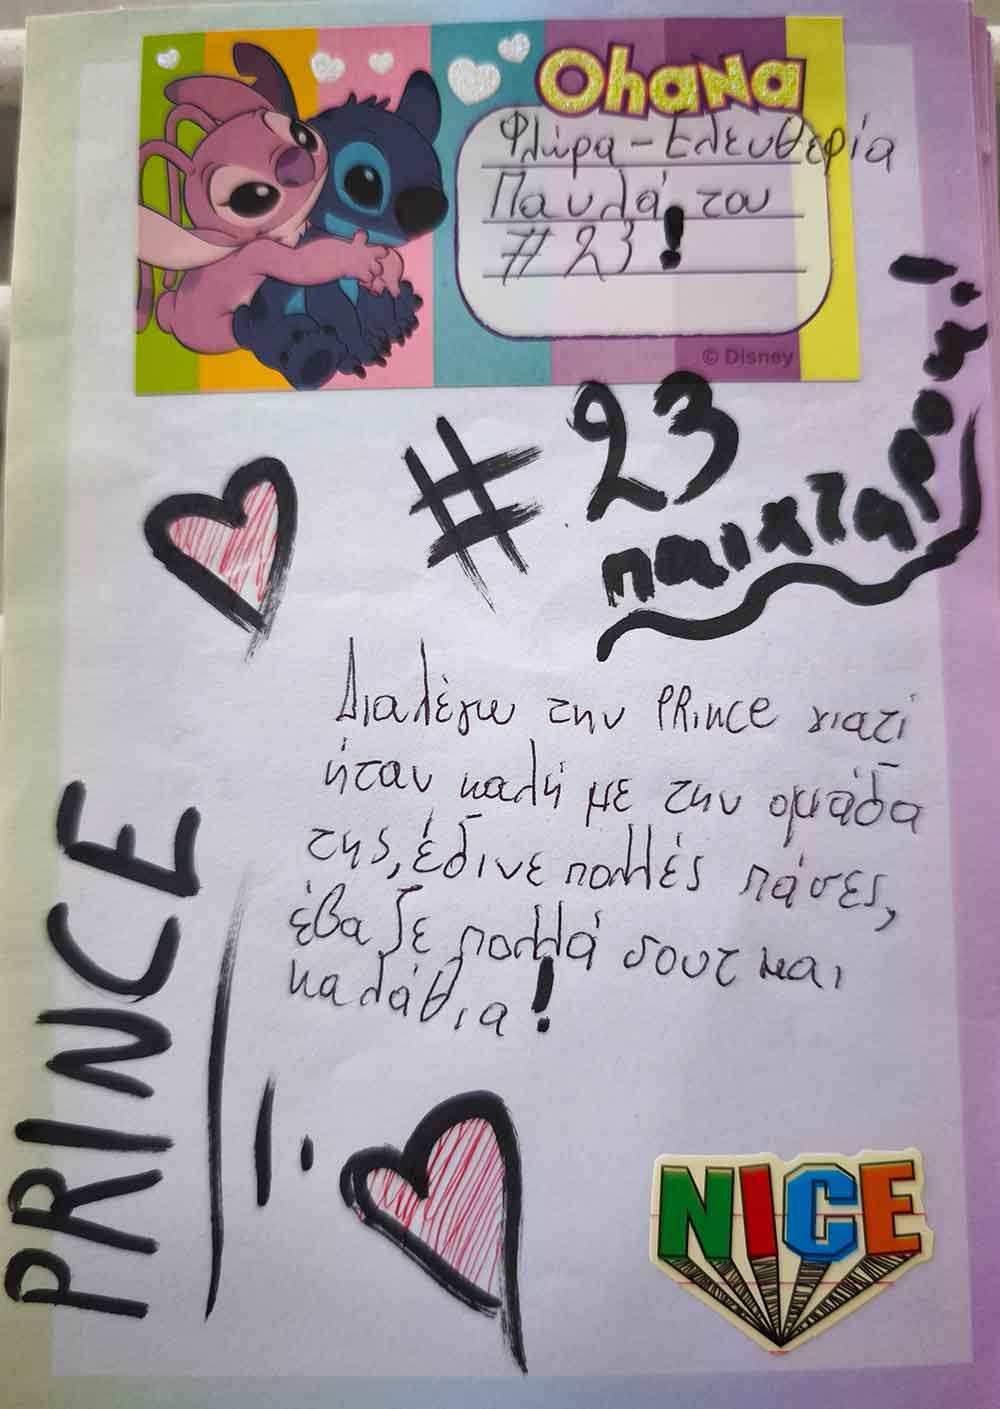 Ohana
Φλώρα - Ελευθερία
Παυλά, του
# 23!
© Disney
# 23
παιχταρου!
Διαλέγω την PRINCE γιατί
ήταν καλή με την ομάδα
της, έδινε πολλές πάσες,
έβαζε πολλά σουτ και
καλάθια!
PRINCE
!
NICE